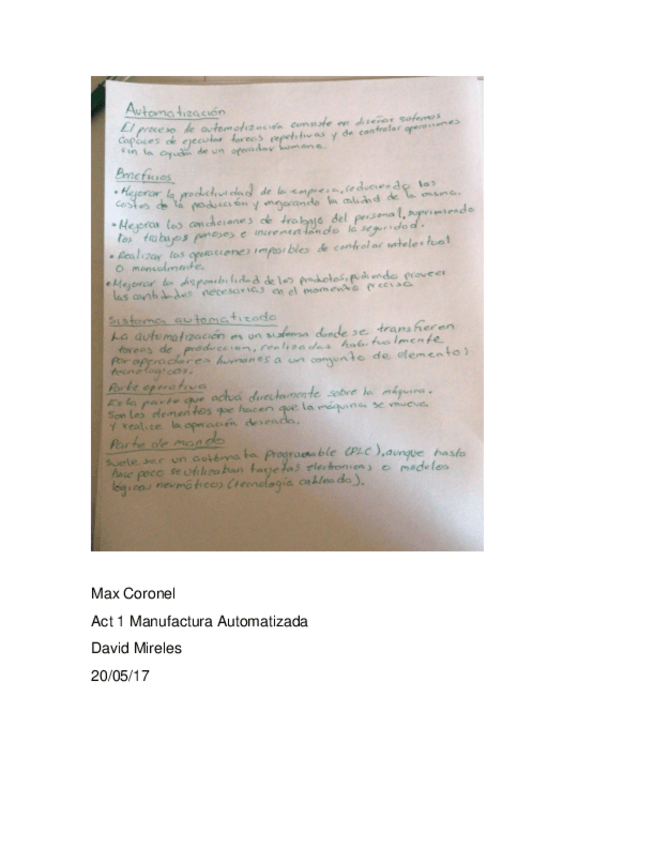 Automatización
El proceso de automatización consiste en diseñar sistemas
capaces de ejecutar tareas repetitivas y de controlar operaciones
sin la ayuda de un operador humano.
Beneficios
• Mejorar la productividad de la empresa, reduciendo los
costes de la producción y mejorando la calidad de la misma.
• Mejorar las condiciones de trabajo del personal, suprimiendo
los trabajos penosos e incrementando la seguridad.
• Realizar las operaciones imposibles de controlar intelectual
o manualmente.
• Mejorar la disponibilidad de los productos, pudiendo proveer
las cantidades necesarias en el momento preciso
Sistema automatizado
La automatización es un sistema donde se transfieren
tareas de producción, realizadas habitualmente
por operadores humanos a un conjunto de elementos
tecnológicos.
Parte operativa
Es la parte que actúa directamente sobre la máquina.
Son los elementos que hacen que la máquina se mueva
y realice la operación deseada.
Parte de mando
Suele ser un autómata programable (PLC), aunque hasta
hace poco se utilizaban tarjetas electronicas o modelos
lógicos neumáticos (tecnología cableada).
Max Coronel
Act 1 Manufactura Automatizada
David Mireles
20/05/17